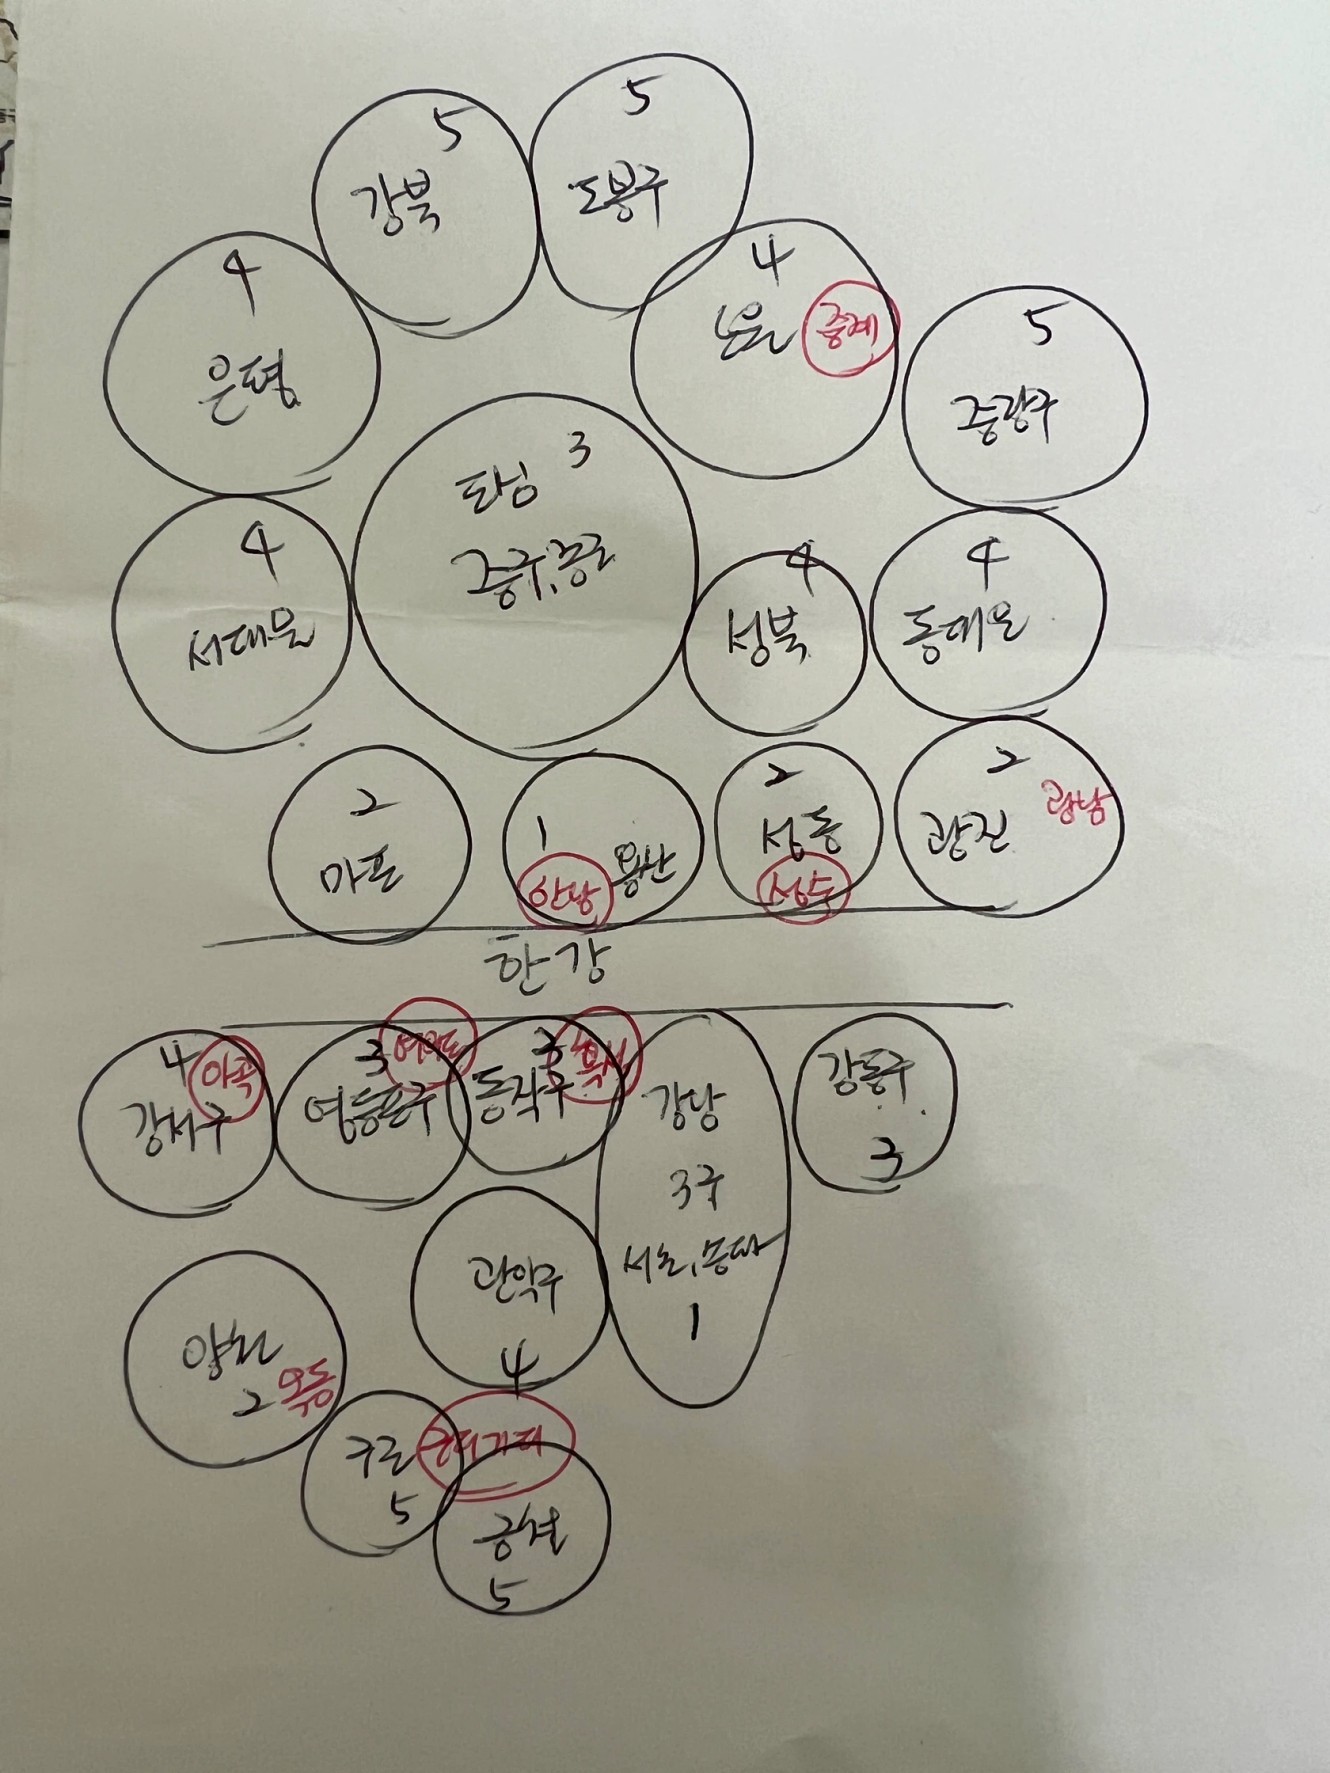 5
강북
5
도봉구
4
은평
4
노원
중계
5
중랑구
3
도심
중구,종로
4
서대문
4
성북
4
동대문
2
마포
1
한남
용산
2
성동
성수
2
광진
광남
한강
4
마곡
강서구
3
여의도
영등포구
3
흑석
동작구
강남
3구
서초,송파
1
강동구
3
관악구
4
양천
2
목동
구로
5
구디가디
금천
5